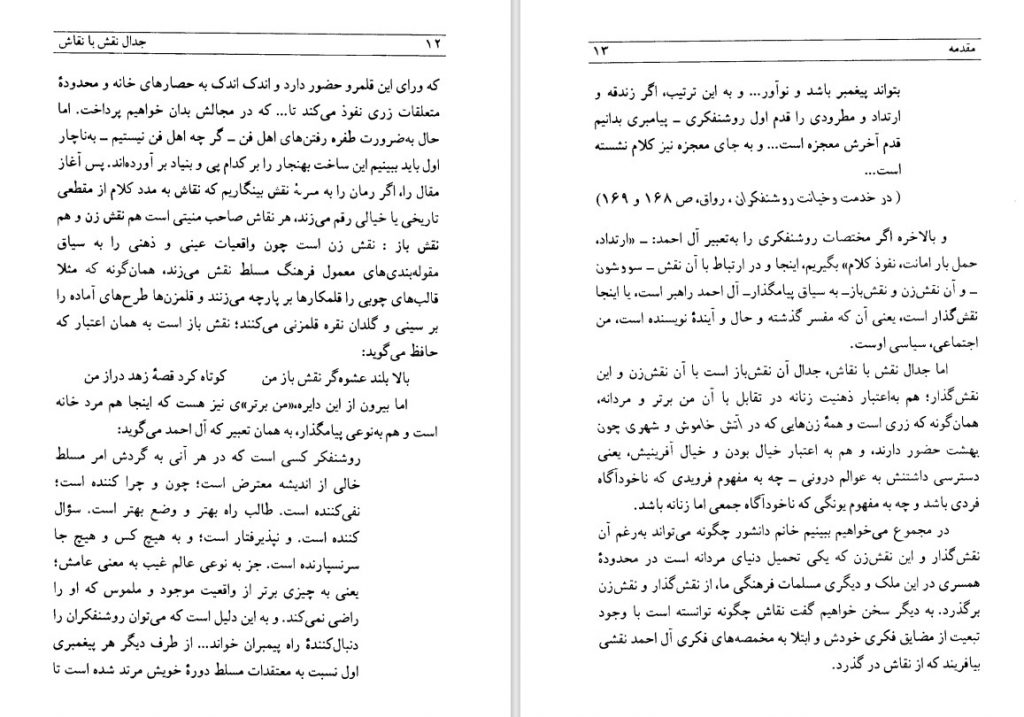 ۱۲
جدال نقش با نقاش
که ورای این قلمرو حضور دارد و اندک اندک به حصارهای خانه و محدودهٔ
متعلقات زری نفوذ می‌کند تا... که در مجالش بدان خواهیم پرداخت. اما
حال به‌ضرورت طفره رفتن‌های اهل فن ــ گر چه اهل فن نیستیم ــ به‌ناچار
اول باید ببینیم این ساخت بهنجار را بر کدام پی و بنیاد بر آورده‌اند. پس آغاز
مقال را، اگر رمان را به نقش بینگاریم که نقاش به مدد کلام از مقطعی
تاریخی یا خیالی رقم می‌زند، هر نقاش صاحب منیتی است هم نقش زن و هم
نقش باز : نقش زن است چون واقعیات عینی و ذهنی را به سیاق
مقوله‌بندی‌های معمول فرهنگ مسلط نقش می‌زند، همان‌گونه که مثلا
قالب‌های چوبی را قلمکارها بر پارچه می‌زنند و قلمزن‌ها طرح‌های آماده را
بر سینی و گلدان نقره قلمزنی می‌کنند؛ نقش باز است به همان اعتبار که
حافظ می‌گوید:
بالا بلند عشوه‌گر نقش باز من کوتاه کرد قصهٔ زهد دراز من
اما بیرون از این دایره،«من برتر»ی نیز هست که اینجا هم مرد خانه
است و هم به‌نوعی پیامگذار، به همان تعبیر که آل احمد می‌گوید:
روشنفکر کسی است که در هر آنی به گردش امر مسلط
خالی از اندیشه معترض است؛ چون و چرا کننده است؛
نفی‌کننده است. طالب راه بهتر و وضع بهتر است. سؤال
کننده است. و نپذیرفتار است؛ و به هیچ کس و هیچ جا
سرنسپارنده است. جز به نوعی عالم غیب به معنی عامش؛
یعنی به چیزی برتر از واقعیت موجود و ملموس که او را
راضی نمی‌کند. و به این دلیل است که می‌توان روشنفکران را
دنبال‌کنندهٔ راه پیمبران خواند... از طرف دیگر هر پیغمبری
اول نسبت به معتقدات مسلط دورهٔ خویش مرتد شده است تا
مقدمه
۱۳
بتواند پیغمبر باشد و نوآور... و به این ترتیب، اگر زندقه و
ارتداد و مطرودی را قدم اول روشنفکری ــ پیامبری بدانیم
قدم آخرش معجزه است... و به جای معجزه نیز کلام نشسته
است...
( در خدمت وخیانت روشنفکران ، رواق، ص ۱۶۸ و ۱۶۹)
و بالاخره اگر مختصات روشنفکری را به‌تعبیر آل احمد: ــ «ارتداد،
حمل بار امانت، نفوذ کلام» بگیریم، اینجا و در ارتباط با آن نقش ــ سووشون
ــ و آن نقش‌زن و نقش‌باز ــ به سیاق پیامگذار ــ آل احمد راهبر است، یا اینجا
نقش‌گذار است، یعنی آن که مفسر گذشته و حال و آیندهٔ نویسنده است، من
اجتماعی، سیاسی اوست.
اما جدال نقش با نقاش، جدال آن نقش‌باز است با آن نقش‌زن و این
نقش‌گذار؛ هم به‌اعتبار ذهنیت زنانه در تقابل با آن من برتر و مردانه،
همان‌گونه که زری است و همهٔ زن‌هایی که در آتش خاموش و شهری چون
بهشت حضور دارند، و هم به اعتبار خیال بودن و خیال آفرینیش، یعنی
دسترسی داشتنش به عوالم درونی ــ چه به مفهوم فرویدی که ناخودآگاه
فردی باشد و چه به مفهوم یونگی که ناخودآگاه جمعی اما زنانه باشد.
در مجموع می‌خواهیم ببینیم خانم دانشور چگونه می‌تواند به‌رغم آن
نقش‌گذار و این نقش‌زن که یکی تحمیل دنیای مردانه است در محدودهٔ
همسری در این ملک و دیگری مسلمات فرهنگی ما، از نقش‌گذار و نقش‌زن
برگذرد. به دیگر سخن خواهیم گفت نقاش چگونه توانسته است با وجود
تبعیت از مضایق فکری خودش و ابتلا به مخمصه‌های فکری آل احمد نقشی
بیافریند که از نقاش در گذرد.